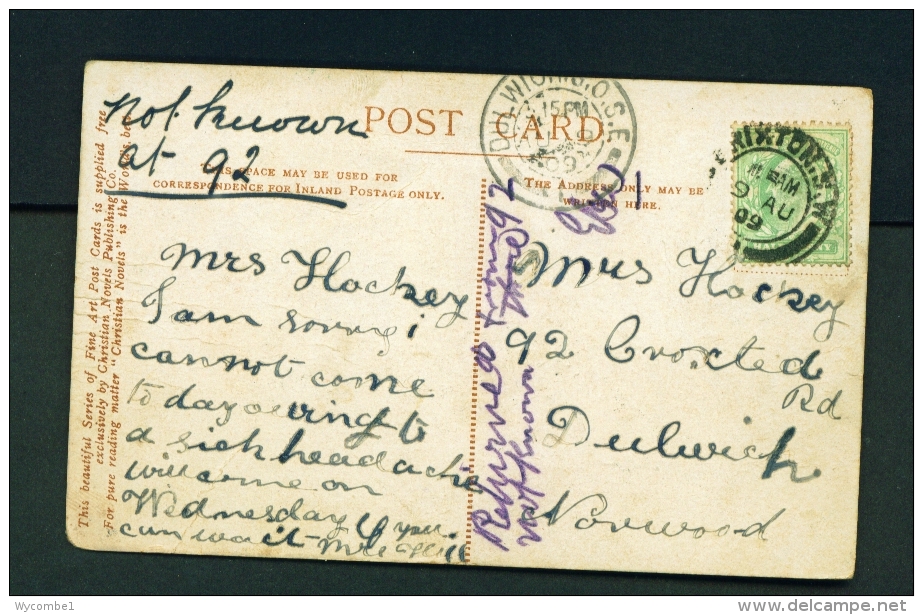 not known
at 92
POST CARD
THIS SPACE MAY BE USED FOR
CORRESPONDENCE FOR INLAND POSTAGE ONLY.
THE ADDRESS ONLY MAY BE
WRITTEN HERE.
This beautiful Series of Fine Art Post Cards is supplied free
exclusively by Christian Novels Publishing Co.
For pure reading matter "Christian Novels" is the World's best
DULWICH S.O. S.E.
15 PM
09
BRIXTON. S.W.
AM
9 AU
09
Mrs Hockey
I am sorry i
cannot come
to day owing to
a sick headache
will come on
Wednesday if you
can wait Mrs
Mrs Hockey
92 Croxted
Rd
Dulwich
Norwood
92
not known
Wycombe1
http://www.delcampe.net